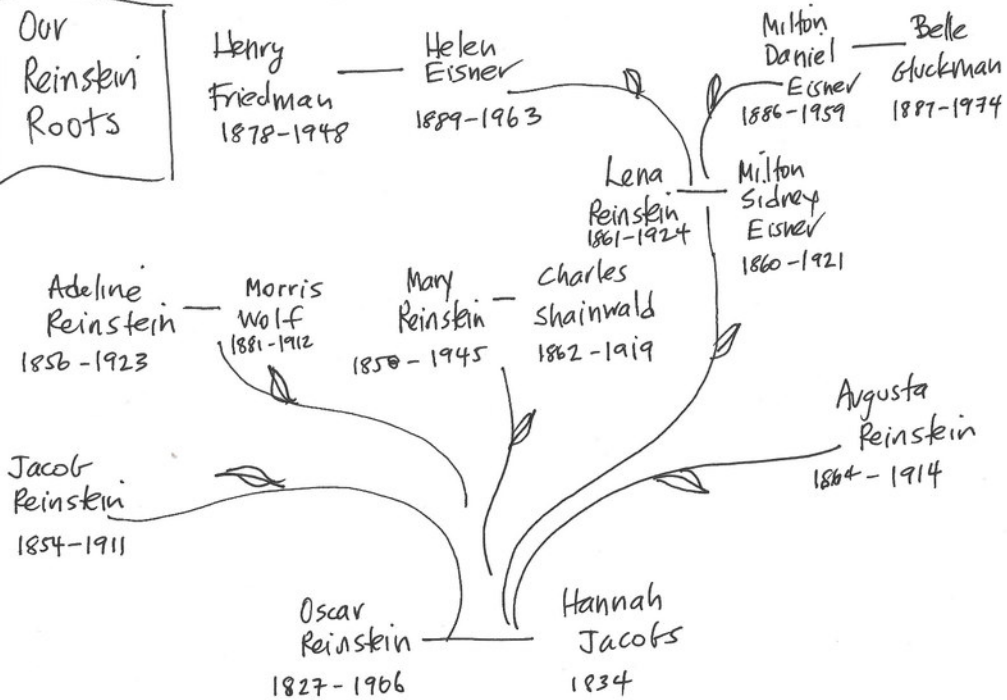 Our
Reinstein
Roots
Henry
Friedman
1878-1948
Helen
Eisner
1889-1963
Milton
Daniel
Eisner
1886-1959
Belle
Gluckman
1887-1974
Lena
Reinstein
1861-1924
Milton
Sidney
Eisner
1860-1921
Adeline
Reinstein
1856-1923
Morris
Wolf
1881-1912
Mary
Reinstein
1858-1945
Charles
Shainwald
1862-1919
Augusta
Reinstein
1864-1914
Jacob
Reinstein
1854-1911
Oscar
Reinstein
1827-1906
Hannah
Jacobs
1834